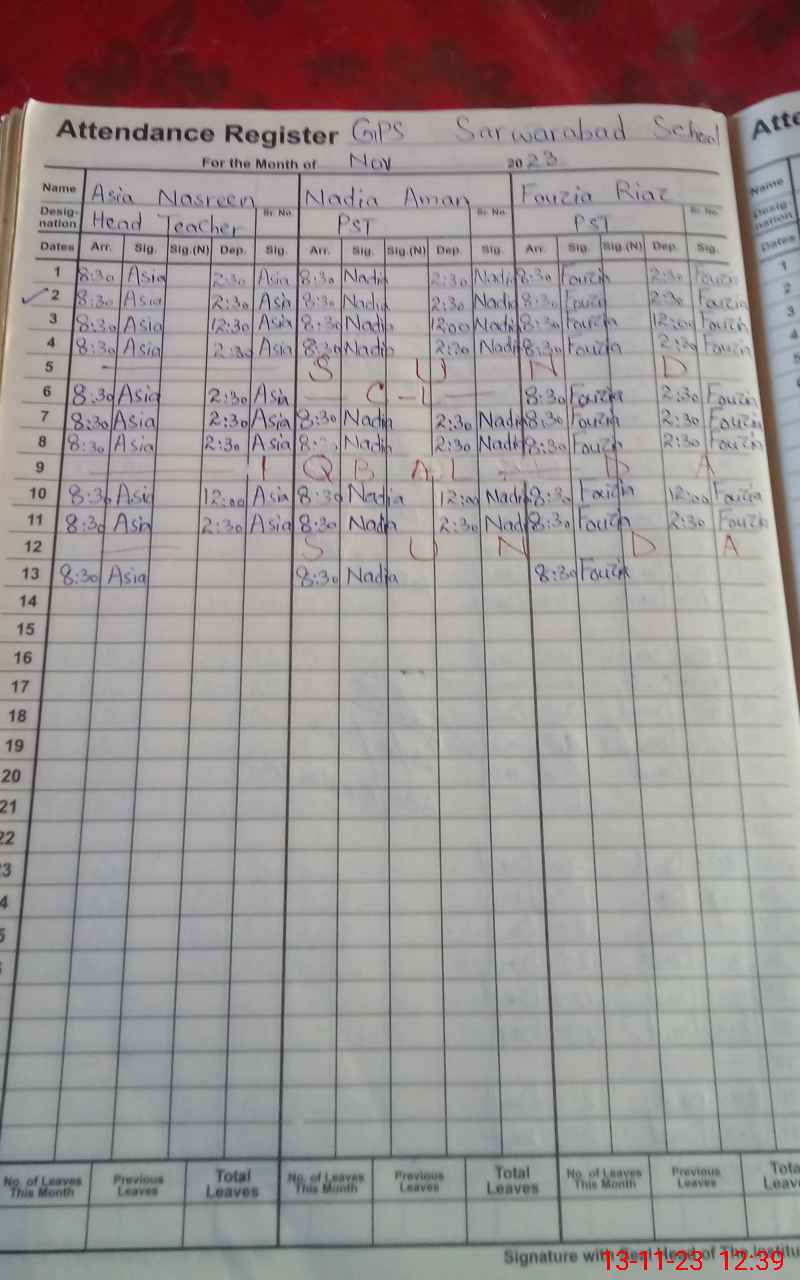 Attendance Register GPS Sarwarabad School
For the Month of Nov 2023
Name Asia Nasreen Nadia Aman Fouzia Riaz
Desig-nation Head Teacher Sr. No. PST Sr. No. PST Sr. No.
Dates Arr. Sig. Sig.(N) Dep. Sig. Arr. Sig. Sig.(N) Dep. Sig. Arr. Sig. Sig.(N) Dep. Sig.
1 8:30 Asia 2:30 Asia 8:30 Nadia 2:30 Nadia 8:30 Fouzia 2:30 Fouzia
2 8:30 Asia 2:30 Asia 8:30 Nadia 2:30 Nadia 8:30 Fouzia 2:30 Fouzia
3 8:30 Asia 12:30 Asia 8:30 Nadia 12:00 Nadia 8:30 Fouzia 12:00 Fouzia
4 8:30 Asia 2:30 Asia 8:30 Nadia 2:30 Nadia 8:30 Fouzia 2:30 Fouzia
5 S U N D
6 8:30 Asia 2:30 Asia C-L 8:30 Fouzia 2:30 Fouzia
7 8:30 Asia 2:30 Asia 8:30 Nadia 2:30 Nadia 8:30 Fouzia 2:30 Fouzia
8 8:30 Asia 2:30 Asia Nadia 2:30 Nadia 8:30 Fouzia 2:30 Fouzia
9 I Q B A L D A
10 8:30 Asia 12:00 Asia 8:30 Nadia 12:00 Nadia 8:30 Fouzia 12:00 Fouzia
11 8:30 Asia 2:30 Asia 8:30 Nadia 2:30 Nadia 8:30 Fouzia 2:30 Fouzia
12 S U N D A
13 8:30 Asia 8:30 Nadia 8:30 Fouzia
14
15
16
17
18
19
20
21
22
3
4
5
No. of Leaves This Month Previous Leaves Total Leaves No. of Leaves This Month Previous Leaves Total Leaves No. of Leaves This Month Previous Leaves Total Leav
Signature with Seal Head of The Institu
13-11-23 12:39